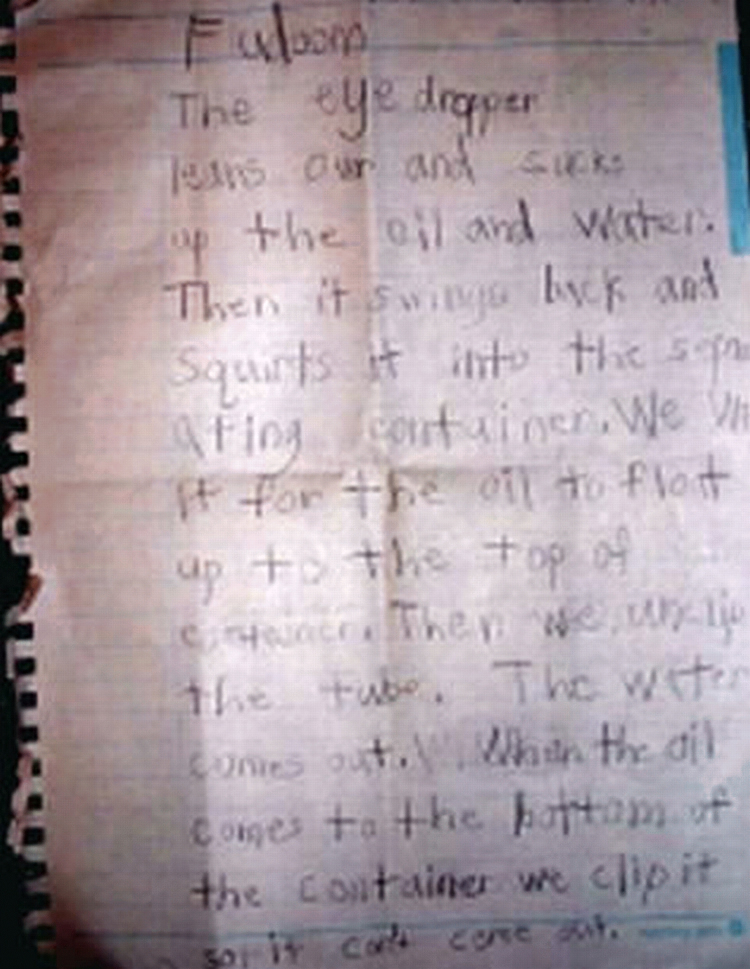 The eye dropper
leans our and sucks
up the oil and water.
Then it swings back and
squirts it into the sepr
ating container. We
it for the oil to flott
up to the top of
container. Then we unclip
the tube. The water
comes out. When the oil
comes to the bottom of
the container we clip it
so, it can't come out.